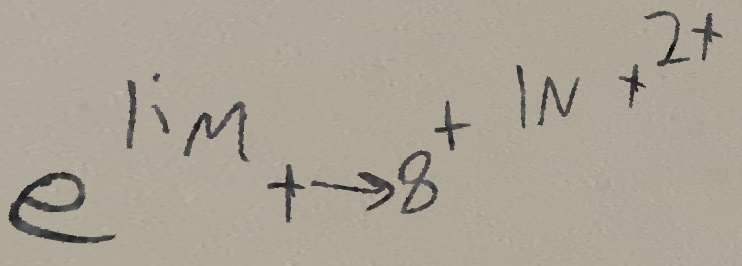 e^{\lim_{t \to 8^+} \ln t^{2t}}